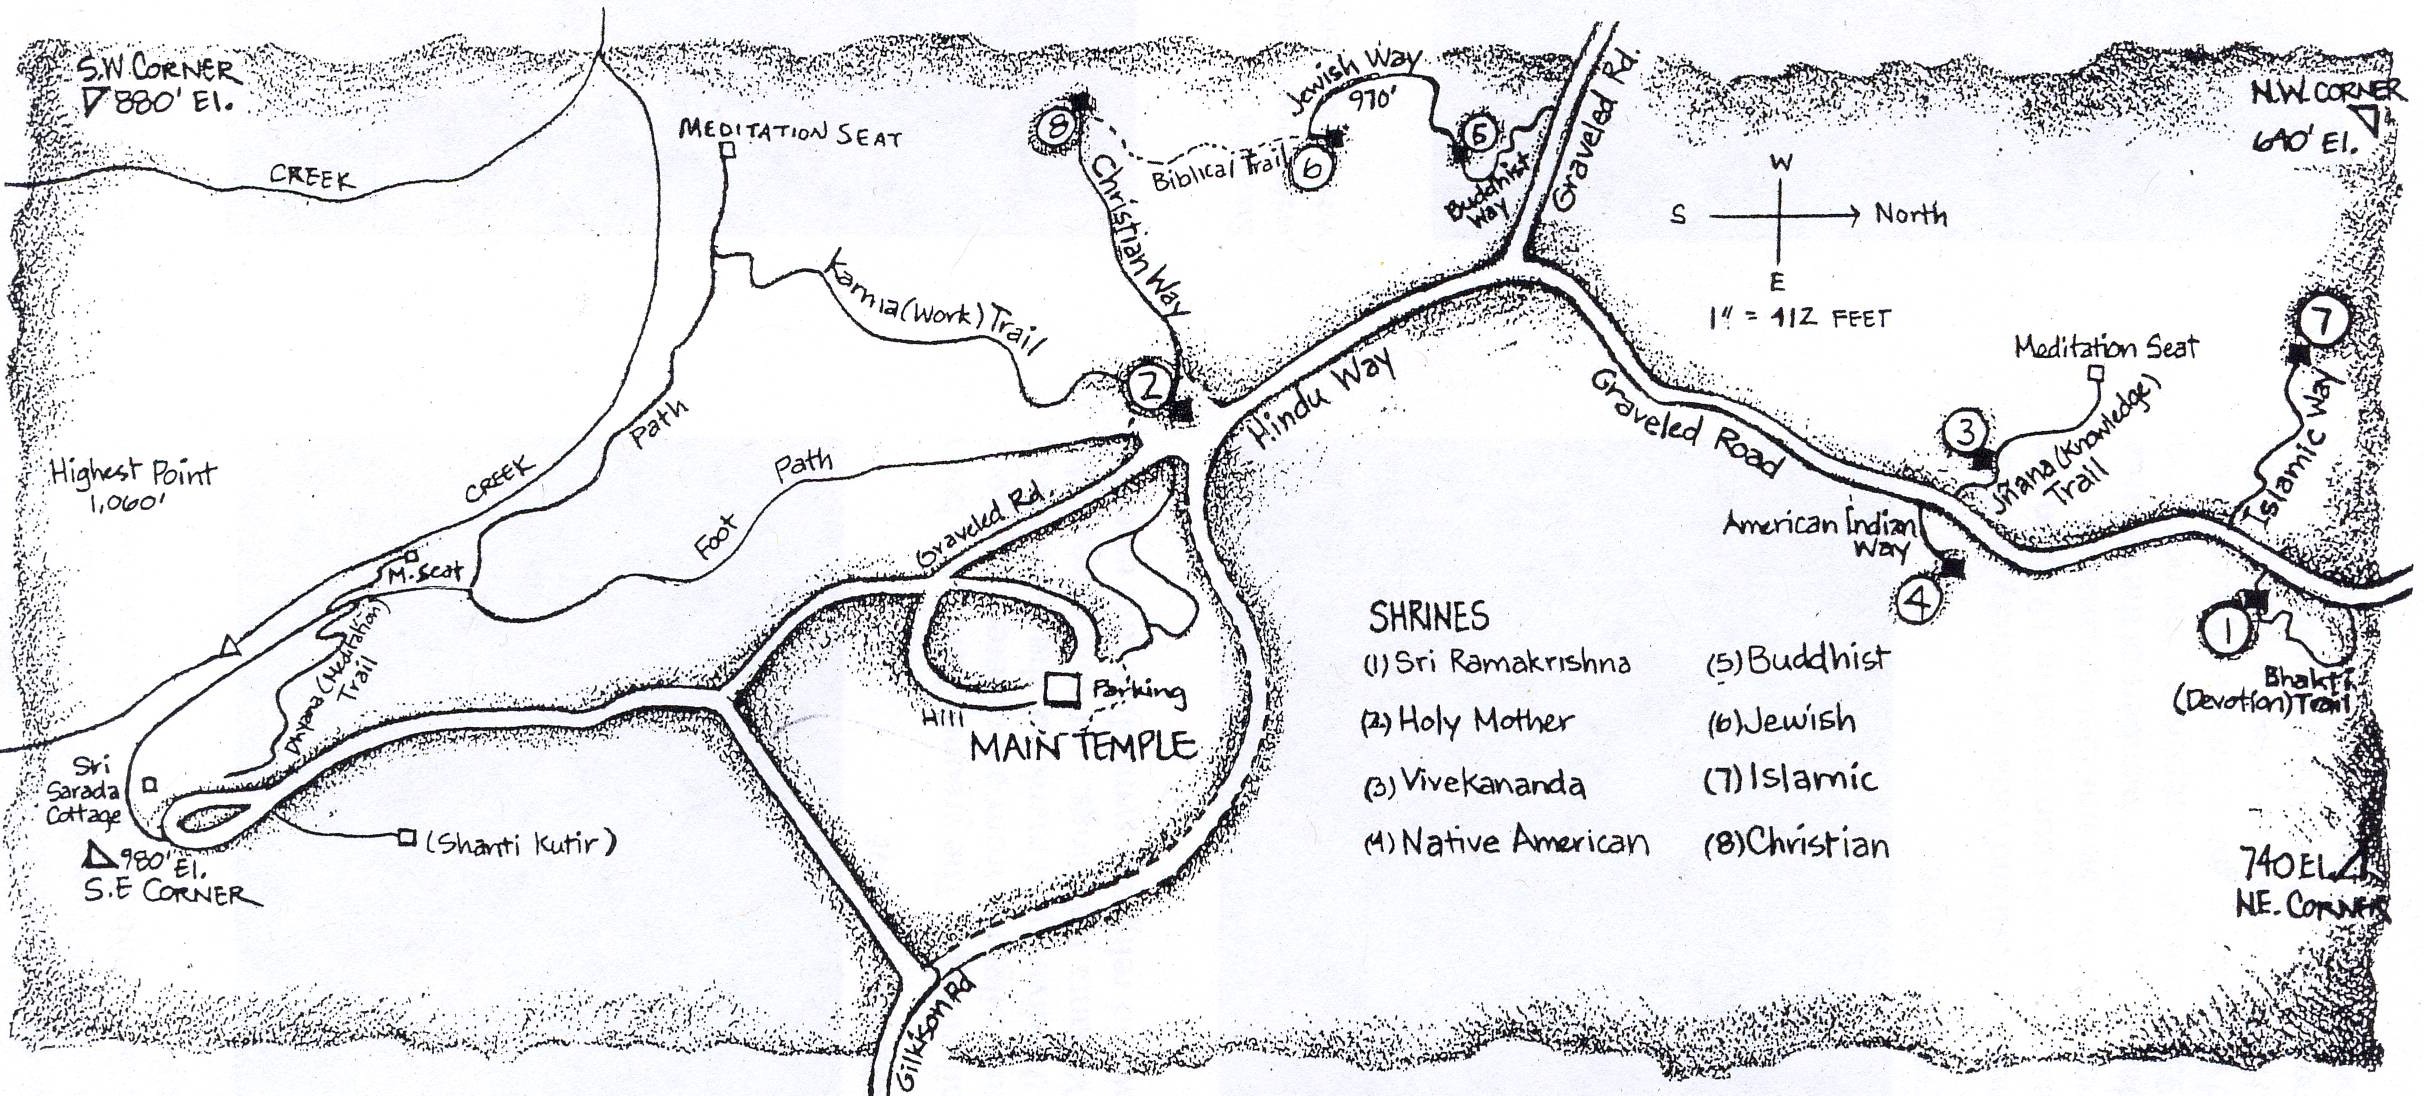 S.W. CORNER
880' El.
CREEK
MEDITATION SEAT
8
Christian Way
Biblical Trail
6
Jewish Way
970'
5
Buddhist
Way
Graveled Rd.
N.W. CORNER
690' El.
W
S
North
E
1" = 412 FEET
Karma (Work) Trail
2
Hindu Way
Graveled Road
Path
Highest Point
1,060'
CREEK
Foot
Path
Graveled Rd.
M. Seat
Dhyana (Meditation)
Trail
Hill
Parking
MAIN TEMPLE
Sri
Sarada
Cottage
980' El.
S.E CORNER
(Shanti Kutir)
Gilkison Rd
Meditation Seat
3
Jñana (Knowledge)
Trail
7
Islamic Way
American Indian
Way
4
1
Bhakti
(Devotion) Trail
740 El.
N.E. CORNER
SHRINES
(1) Sri Ramakrishna
(2) Holy Mother
(3) Vivekananda
(4) Native American
(5) Buddhist
(6) Jewish
(7) Islamic
(8) Christian